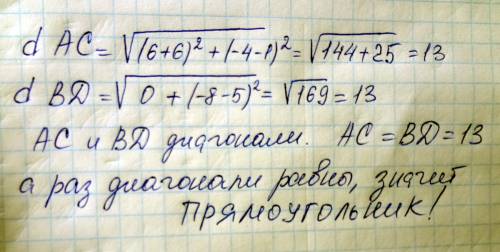 d AC = √(6+6)² + (-4-1)² = √144+25 = 13
d BD = √0 + (-8-5)² = √169 = 13
AC и BD диагонали. AC = BD = 13
а раз диагонали равны, значит
ПРЯМОУГОЛЬНИК!